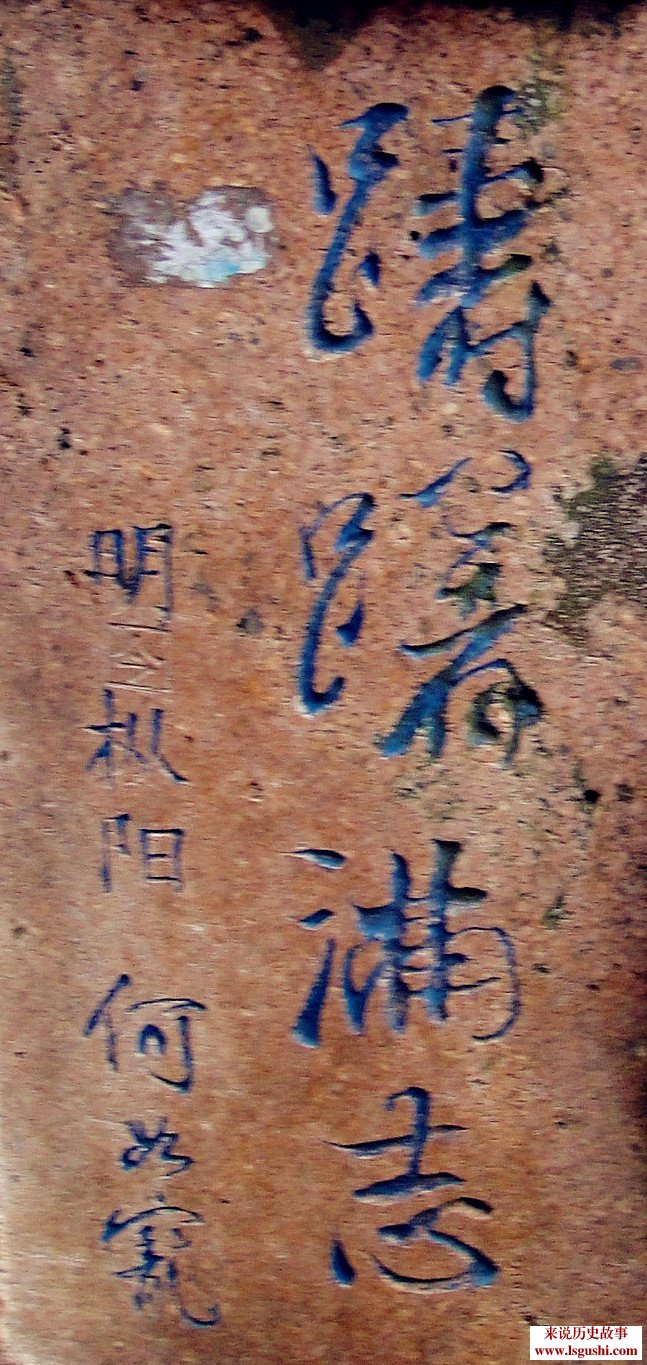 踌躇满志
明枞阳 何如宠
来说历史故事
www.lsgushi.com